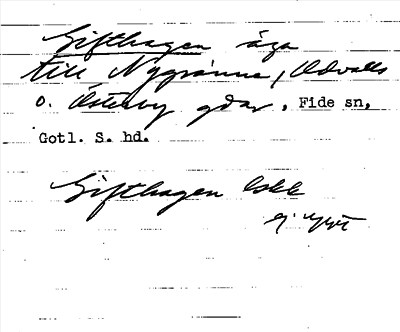 Gifthagen äga
till Nygranne, Odvalls
o. Österby gdar. Fide sn,
Gotl. S. hd.
Gifthagen lokk
ej uppt